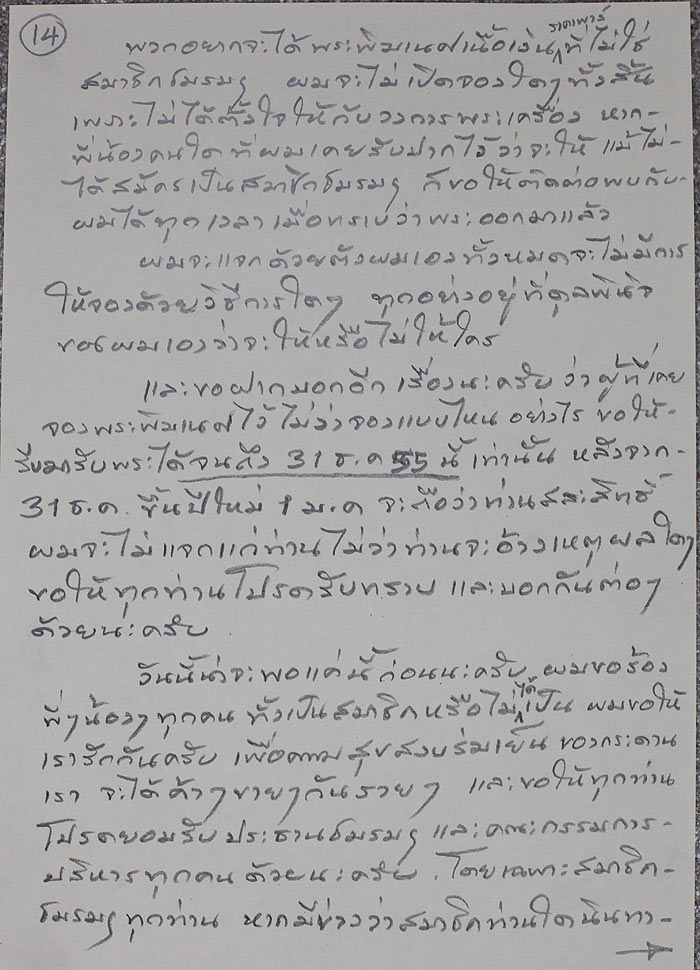 14
ราคาเพาว์
พวกอยากจะได้พระพิฆเนศเนื้อเงิน ที่ไม่ใช่
สมาชิกชมรมฯ ผมจะไม่เปิดจองใดๆทั้งสิ้น
เพราะไม่ได้ตั้งใจให้กับวงการพระเครื่อง หาก-
พี่น้องคนใดที่ผมเคยรับปากไว้ว่าจะให้ แม้ไม่-
ได้สมัครเป็นสมาชิกชมรมฯ ก็ขอให้ติดต่อพบกับ-
ผมได้ทุกเวลาเมื่อทราบว่าพระออกมาแล้ว
ผมจะแจกด้วยตัวผมเองทั้งหมดจะไม่มีการ
ให้จองด้วยวิธีการใดๆ ทุกอย่างอยู่ที่ดุลพินิจ
ของผมเองว่าจะให้หรือไม่ให้ใคร
และขอฝากบอกอีกเรื่องนะครับ ว่าผู้ที่เคย
จองพระพิฆเนศไว้ ไม่ว่าจองแบบไหน อย่างไร ขอให้-
รีบมารับพระได้จนถึง 31 ธ.ค 55 นี้ เท่านั้น หลังจาก-
31 ธ.ค. ขึ้นปีใหม่ 1 ม.ค จะถือว่าท่านสละสิทธิ์
ผมจะไม่แจกแก่ท่านไม่ว่าท่านจะอ้างเหตุผลใดๆ
ขอให้ทุกท่านโปรดรับทราบ และบอกกันต่อๆ
ด้วยนะครับ
วันนี้น่าจะพอแค่นี้ก่อนนะครับ ผมขอร้อง
พี่ๆน้องๆทุกคน ทั้งเป็นสมาชิกหรือไม่ได้เป็น ผมขอให้
เรารักกันครับ เพื่อความสุขสงบร่มเย็น ของกระดาน
เรา จะได้ค้าๆขายๆกันรวยๆ และขอให้ทุกท่าน
โปรดยอมรับ ประธานชมรมฯ และคณะกรรมการ-
บริหารทุกคนด้วยนะครับ. โดยเฉพาะสมาชิก-
ชมรมฯทุกท่าน หากมีข่าวว่าสมาชิกท่านใดนินทา-